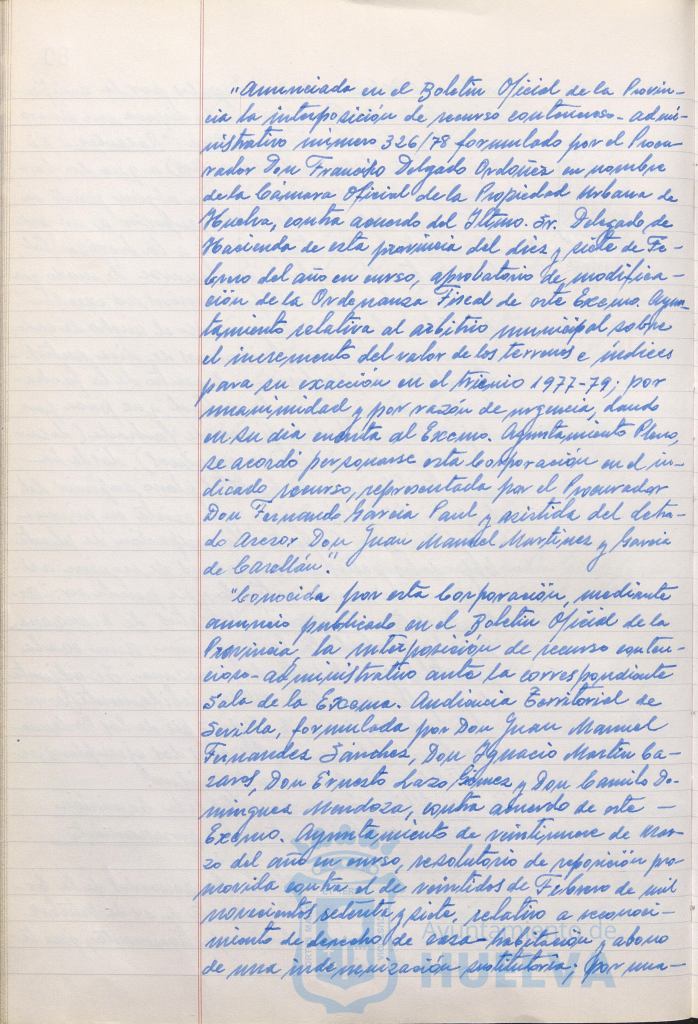 "Anunciada en el Boletín Oficial de la Provin-
cia la interposición de recurso contencioso-admi-
nistrativo número 326/78 formulado por el Procu-
rador Don Francisco Delgado Ordóñez en nombre
de la Cámara Oficial de la Propiedad Urbana de
Huelva, contra acuerdo del Iltmo. Sr. Delegado de
Hacienda de esta provincia del diez y siete de Fe-
brero del año en curso, aprobatorio de modifica-
ción de la Ordenanza Fiscal de este Excmo. Ayun-
tamiento relativa al arbitrio municipal sobre
el incremento del valor de los terrenos e índices
para su exacción en el trienio 1977-79; por
unanimidad y por razón de urgencia, dando
en su día cuenta al Excmo. Ayuntamiento Pleno,
se acordó personarse esta Corporación en el in-
dicado recurso, representada por el Procurador
Don Fernando García Paul y asistida del letra-
do Asesor Don Juan Manuel Martínez y García
de Casellán".
"Conocida por esta Corporación, mediante
anuncio publicado en el Boletín Oficial de la
Provincia, la interposición de recurso conten-
cioso-administrativo ante la correspondiente
Sala de la Excma. Audiencia Territorial de
Sevilla, formulada por Don Juan Manuel
Fernandez Sánchez, Don Ignacio Martín Ca-
zares, Don Ernesto Lazo Gómez y Don Camilo Do-
minguez Mendoza, contra acuerdo de este -
Excmo. Ayuntamiento de veintinueve de Mar-
zo del año en curso, resolutorio de reposición pro-
movida contra el de veintidos de Febrero de mil
novecientos setenta y siete, relativo a reconoci-
miento de derecho de casa-habitación y abono
de una indemnización sustitutoria; por una-
Ayuntamiento de
HUELVA